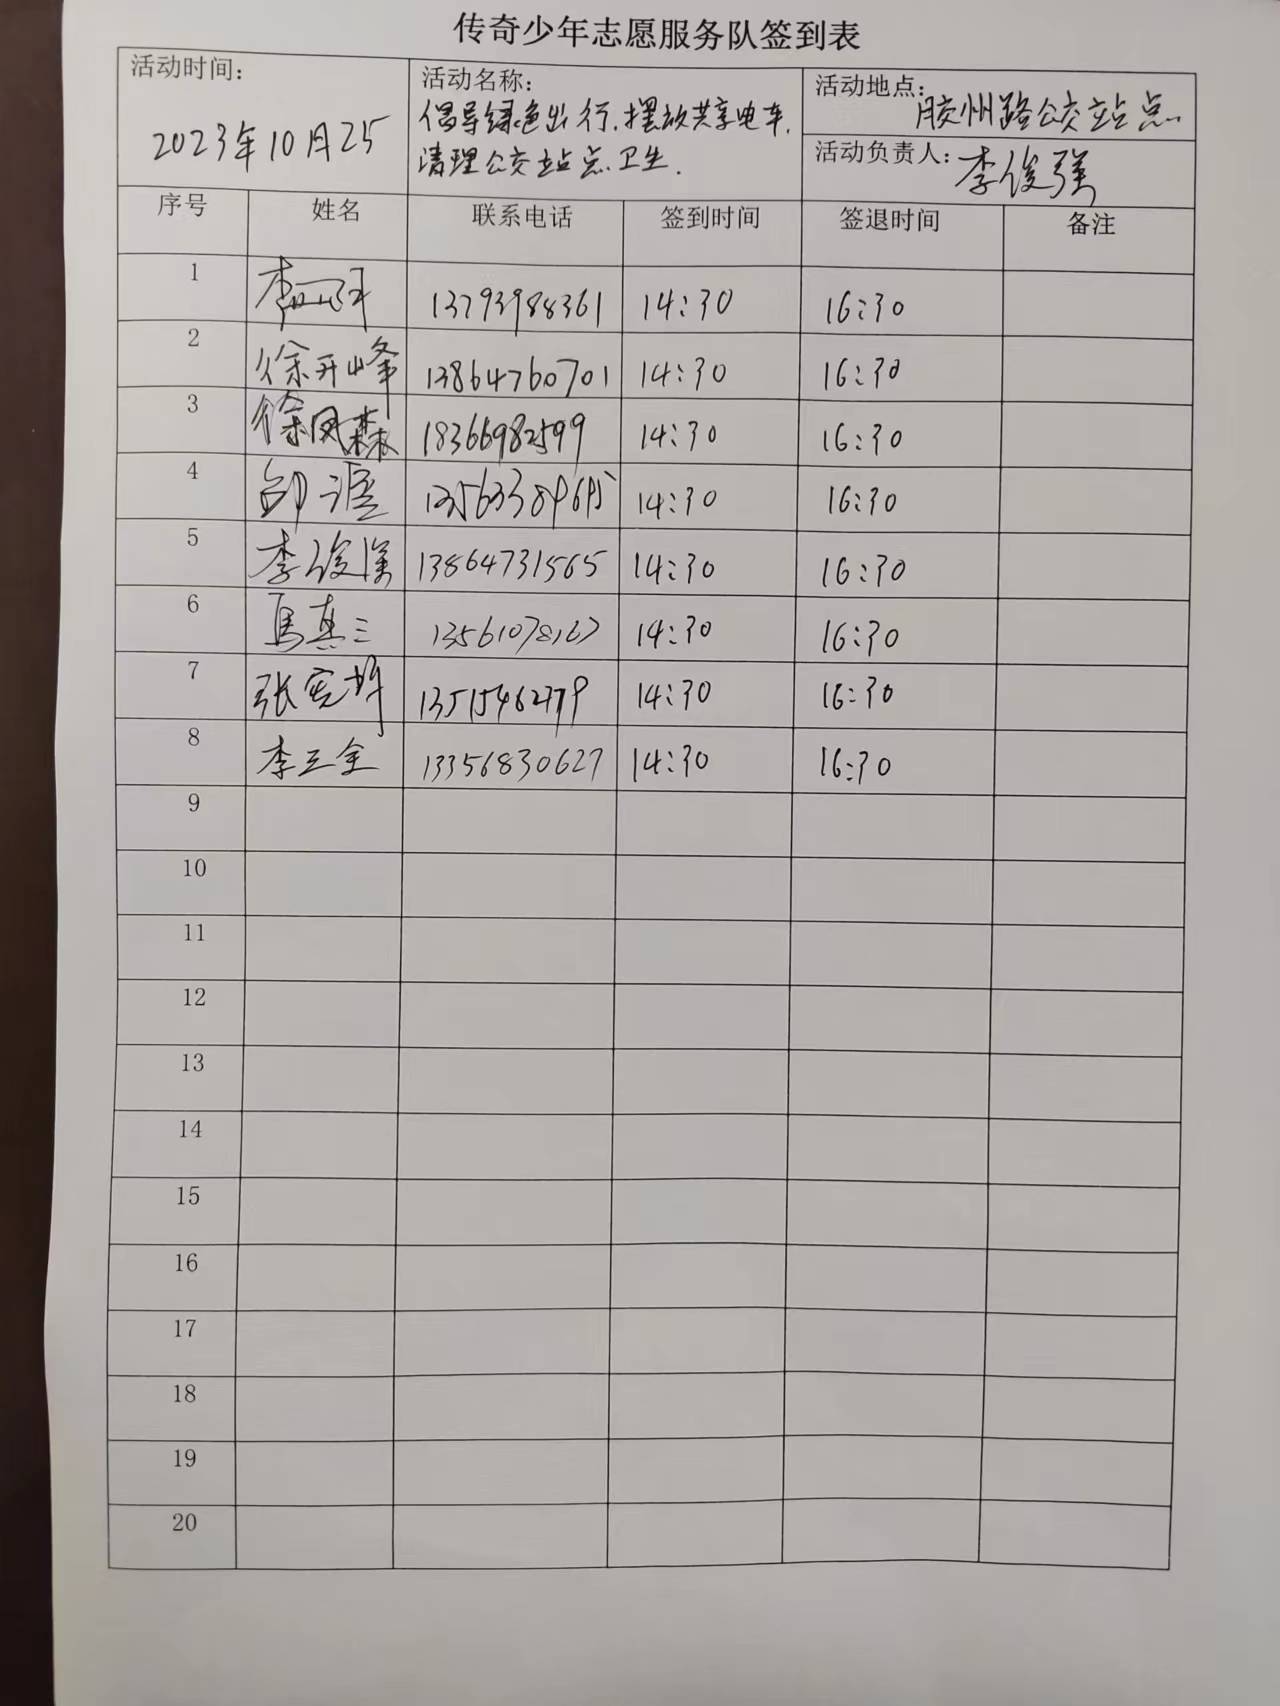 传奇少年志愿服务队签到表
活动时间：
2023年10月25
活动名称：
倡导绿色出行.摆放共享电车.
清理公交站点卫生.
活动地点：胶州路公交站点
活动负责人：李俊强
序号 姓名 联系电话 签到时间 签退时间 备注
1 李 13793988361 14:30 16:30
2 徐开峰 13864760701 14:30 16:30
3 徐凤森 18366982599 14:30 16:30
4 14:30 16:30
5 李俊强 13864731565 14:30 16:30
6 馬真三 13561078167 14:30 16:30
7 张 14:30 16:30
8 李三全 13356830627 14:30 16:30
9
10
11
12
13
14
15
16
17
18
19
20